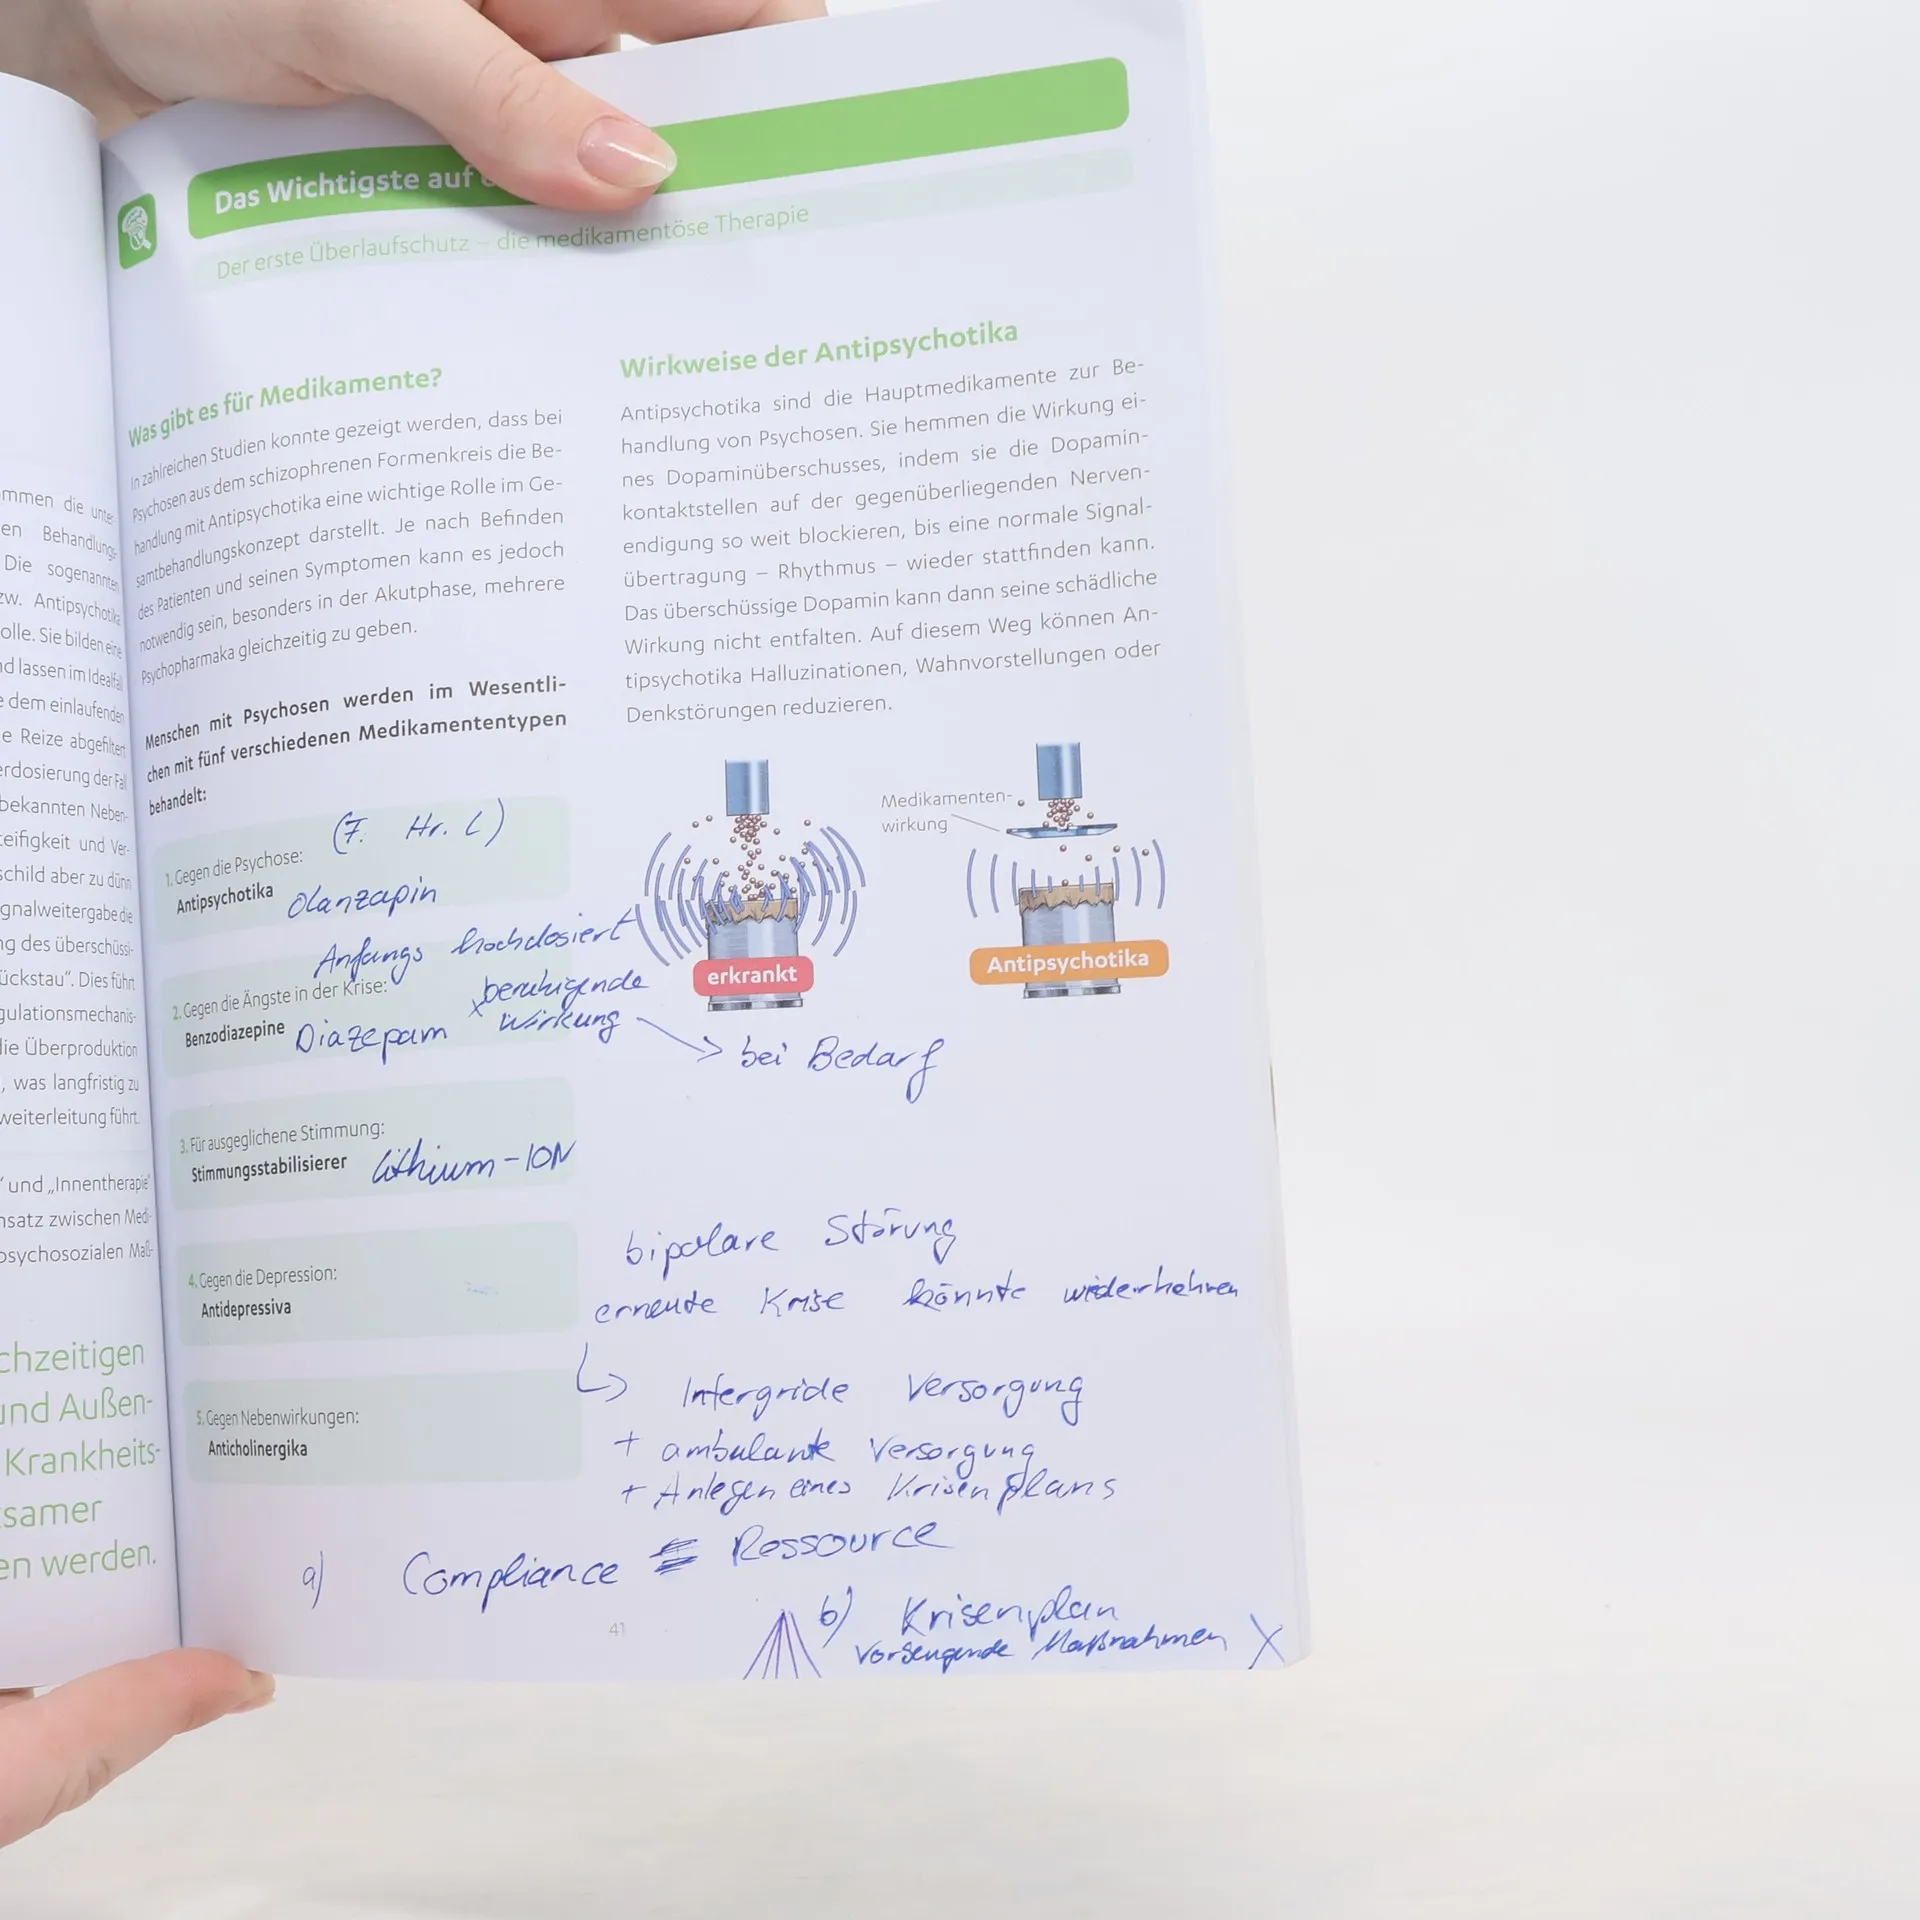 mmen die unter-
en Behandlungs-
Die sogenannten
zw. Antipsychotika
olle. Sie bilden eine
nd lassen im Idealfall
e dem einlaufenden
e Reize abgefiltert
erdosierung der Fall
bekannten Neben-
teifigkeit und Ver-
schild aber zu dünn
gnalweitergabe die
ng des überschüssi-
ückstau“. Dies führt
gulationsmechanis-
die Überproduktion
, was langfristig zu
weiterleitung führt.
“ und „Innentherapie“
nsatz zwischen Medi-
psychosozialen Maß-
chzeitigen
und Außen-
Krankheits-
samer
en werden.
Das Wichtigste auf
Der erste Überlaufschutz – die medikamentöse Therapie
Was gibt es für Medikamente?
In zahlreichen Studien konnte gezeigt werden, dass bei
Psychosen aus dem schizophrenen Formenkreis die Be-
handlung mit Antipsychotika eine wichtige Rolle im Ge-
samtbehandlungskonzept darstellt. Je nach Befinden
des Patienten und seinen Symptomen kann es jedoch
notwendig sein, besonders in der Akutphase, mehrere
Psychopharmaka gleichzeitig zu geben.
Menschen mit Psychosen werden im Wesentli-
chen mit fünf verschiedenen Medikamententypen
behandelt:
(F. Hr. L)
1. Gegen die Psychose:
Antipsychotika Olanzapin
Anfangs hochdosiert
2. Gegen die Ängste in der Krise:
x beruhigende
Benzodiazepine Diazepam
Wirkung
bei Bedarf
3. Für ausgeglichene Stimmung:
Stimmungsstabilisierer Lithium-ION
4. Gegen die Depression:
Antidepressiva
5. Gegen Nebenwirkungen:
Anticholinergika
Wirkweise der Antipsychotika
Antipsychotika sind die Hauptmedikamente zur Be-
handlung von Psychosen. Sie hemmen die Wirkung ei-
nes Dopaminüberschusses, indem sie die Dopamin-
kontaktstellen auf der gegenüberliegenden Nerven-
endigung so weit blockieren, bis eine normale Signal-
übertragung – Rhythmus – wieder stattfinden kann.
Das überschüssige Dopamin kann dann seine schädliche
Wirkung nicht entfalten. Auf diesem Weg können An-
tipsychotika Halluzinationen, Wahnvorstellungen oder
Denkstörungen reduzieren.
Medikamenten-
wirkung
erkrankt
Antipsychotika
bipolare Störung
erneute Krise könnte wiederkehren
Intergride Versorgung
+ ambulante Versorgung
+ Anlegen eines Krisenplans
a) Compliance = Ressource
b) Krisenplan
Vorseugende Maßnahmen X
41